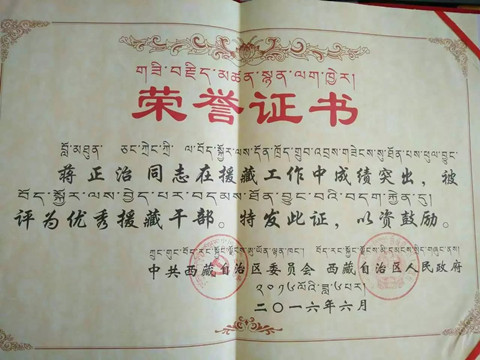 གཟི་བརྗིད་མཚན་སྙན་ལག་ཁྱེར།
荣誉证书
བློ་མཐུན་ ཅང་ཀྲེང་ཀྲི་ ལ་བོད་སྐྱོར་ལས་དོན་ཁྲོད་གྲུབ་འབྲས་གཟེངས་སུ་ཐོན་པས་ཕུལ་བྱུང་
蒋正治同志在援藏工作中成绩突出，被
བོད་སྐྱོར་ལས་བྱེད་པར་བདམས་ཐོན་བྱུང་བའི་བདག་རྐྱེན་དུ།
评为优秀援藏干部。特发此证，以资鼓励。
中共西藏自治区委员会 西藏自治区人民政府
༢༠༡༦ལོའི་ཟླ་༦པར།
二〇一六年六月